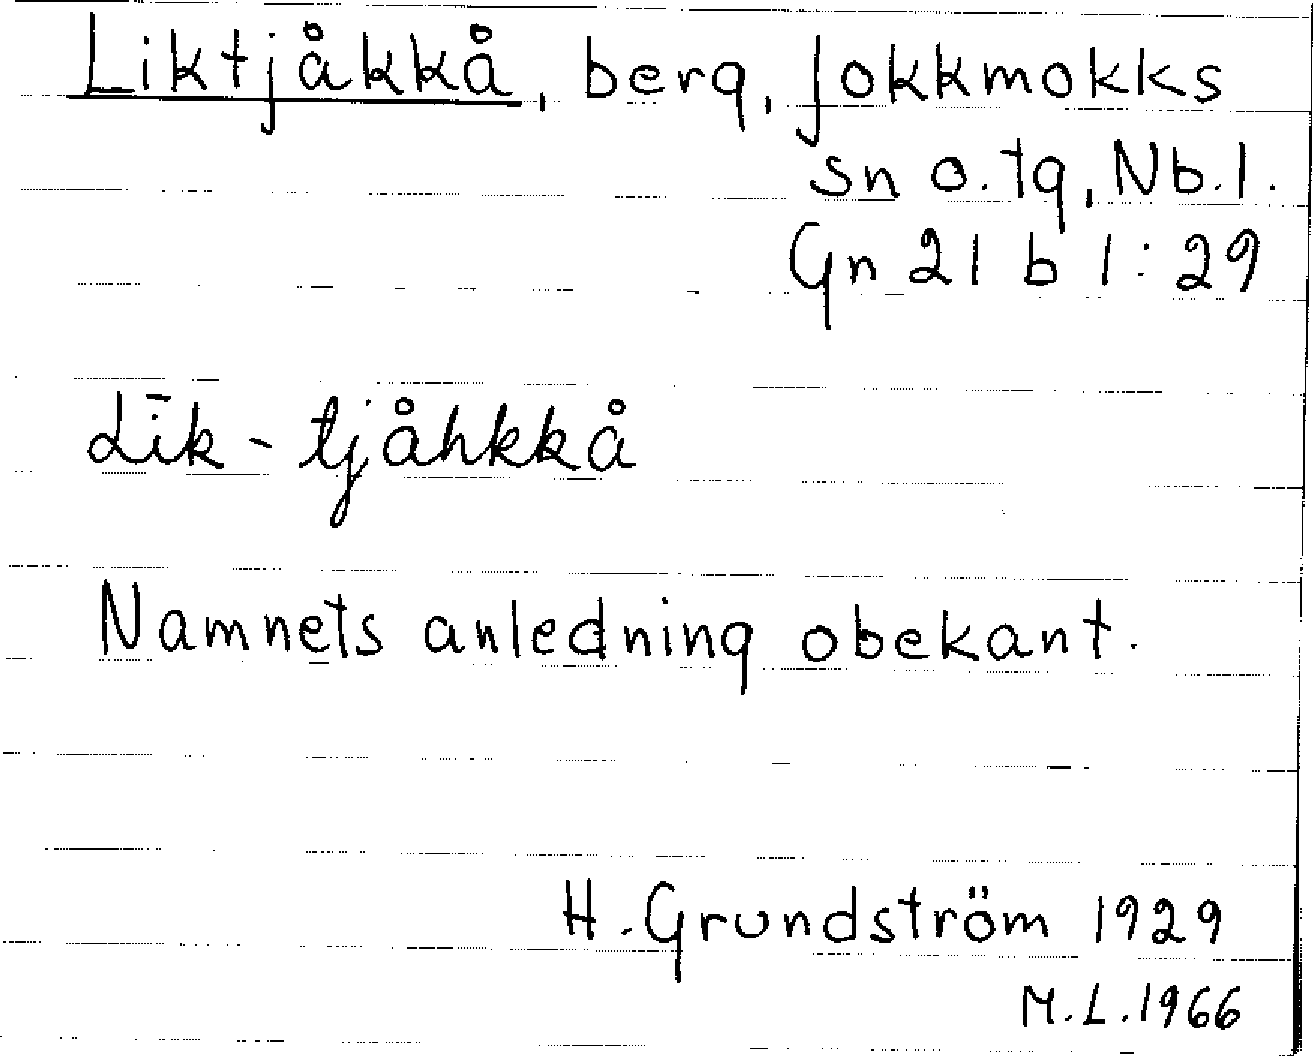 Liktjåkkå, berg, Jokkmokks
sn o. tg, Nb. l.
Gn 21 b 1:29
Līk-tjåhkkå
Namnets anledning obekant.
H. Grundström 1929
M.L. 1966